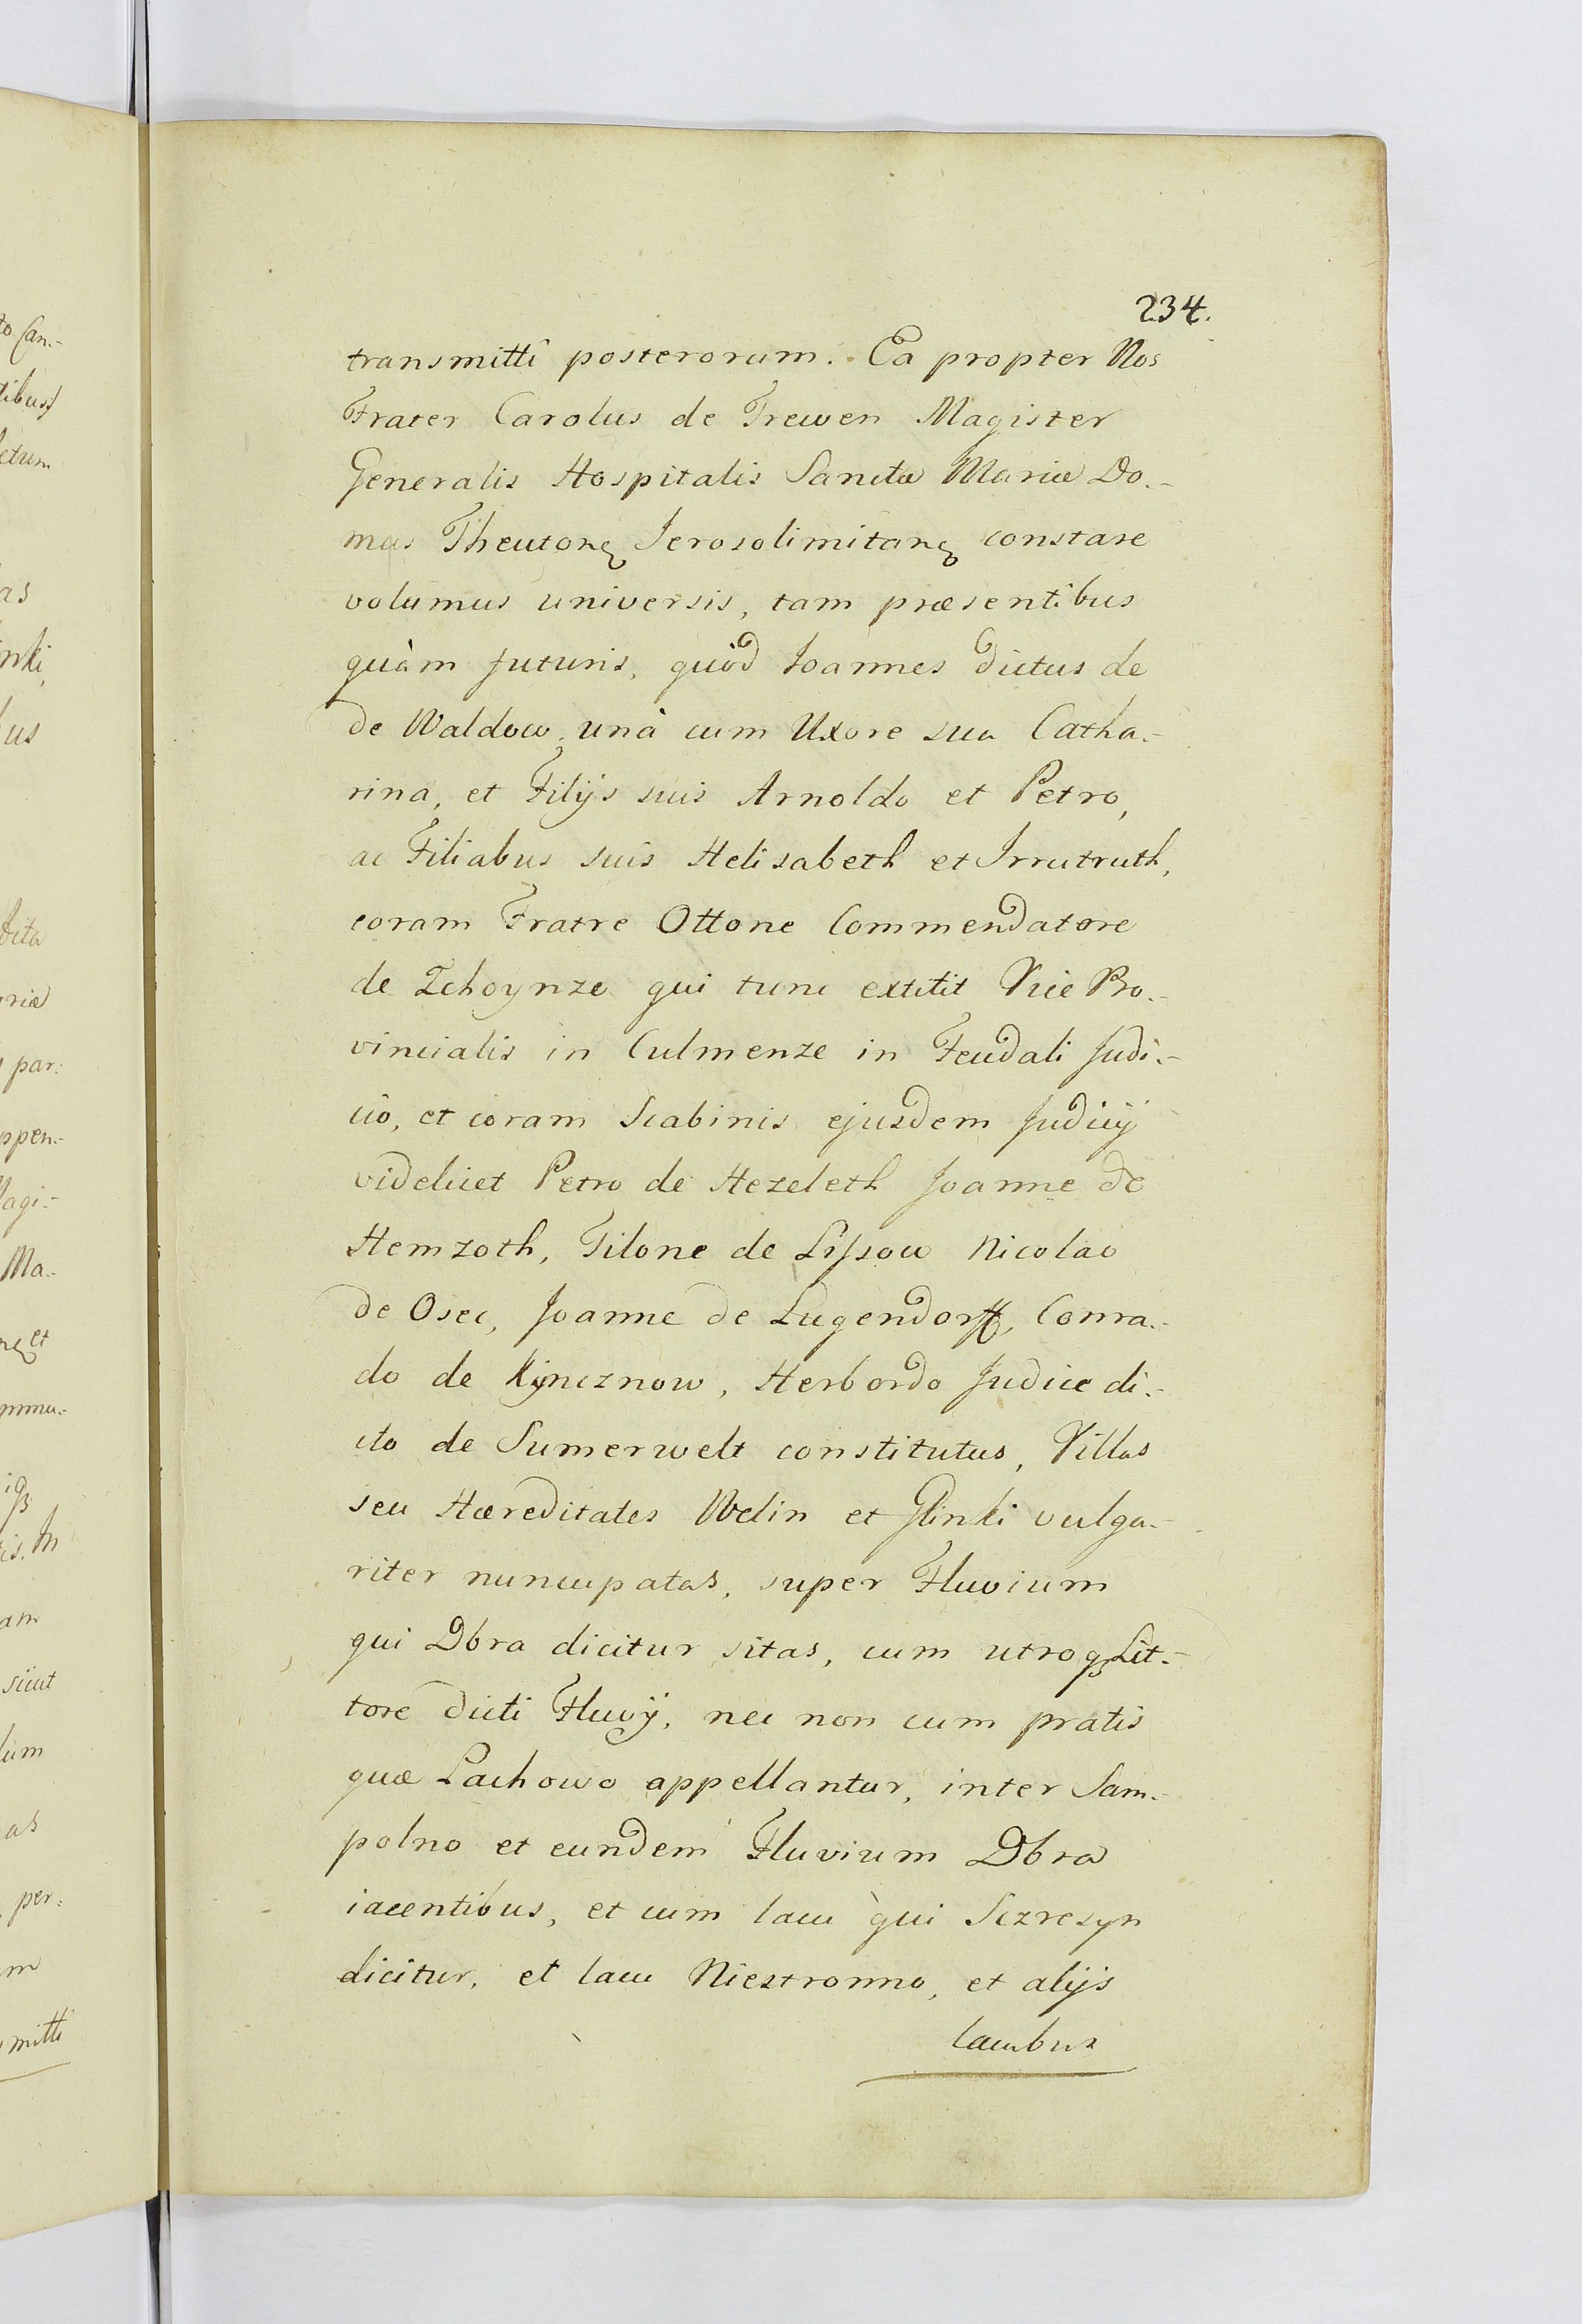 234.
transmitti posterorum. Ea propter Nos
Frater Carolus de Trewen Magister
Generalis Hospitalis Sanctæ Mariæ Do.-
mus Theutonę Jerosolimitanę constare
volumus universis, tam præsentibus
quàm futuris, quòd Joannes dictus de
de Waldow, unà cum Uxore sua Catha.-
rina, et Filijs suis Arnoldo et Petro,
ac Filiabus suis Helisabeth et Irrutruth,
coram Fratre Ottone Commendatore
de Tchoynze qui tunc extitit Vice Pro.-
vincialis in Culmenze in Feudali Judi.-
cio, et coram Scabinis ejusdem Judicij
videlicet Petro de Hezeleth Joanne de
Hemzoth, Tilone de Lissow Nicolao
de Osec, Joanne de Lugendorff, Conra.-
do de Kÿncznow, Herbordo Judice di.-
cto de Sumerwelt constitutus, Villas
seu Hæreditates Welin et Glinki vulga.-
riter nuncupatas, super Fluvium
qui Dbra dicitur sitas, cum utroqꝫ Lit.-
tore dicti Fluvij, nec non cum pratis
quæ Lachowo appellantur, inter Sam.-
polno et eundem Fluvium Dbra
iacentibus, et cum lacu qui Sczresyn
dicitur, et lacu Niestronno, et alijs
lacubus
to Can.-
tibus
etum
as
inki,
us
dicta
riæ
par:
ppen.-
Magi.-
Ma.-
nę et
mmu.-
is. In
am
sicut
lum
as
per:
m
mitti